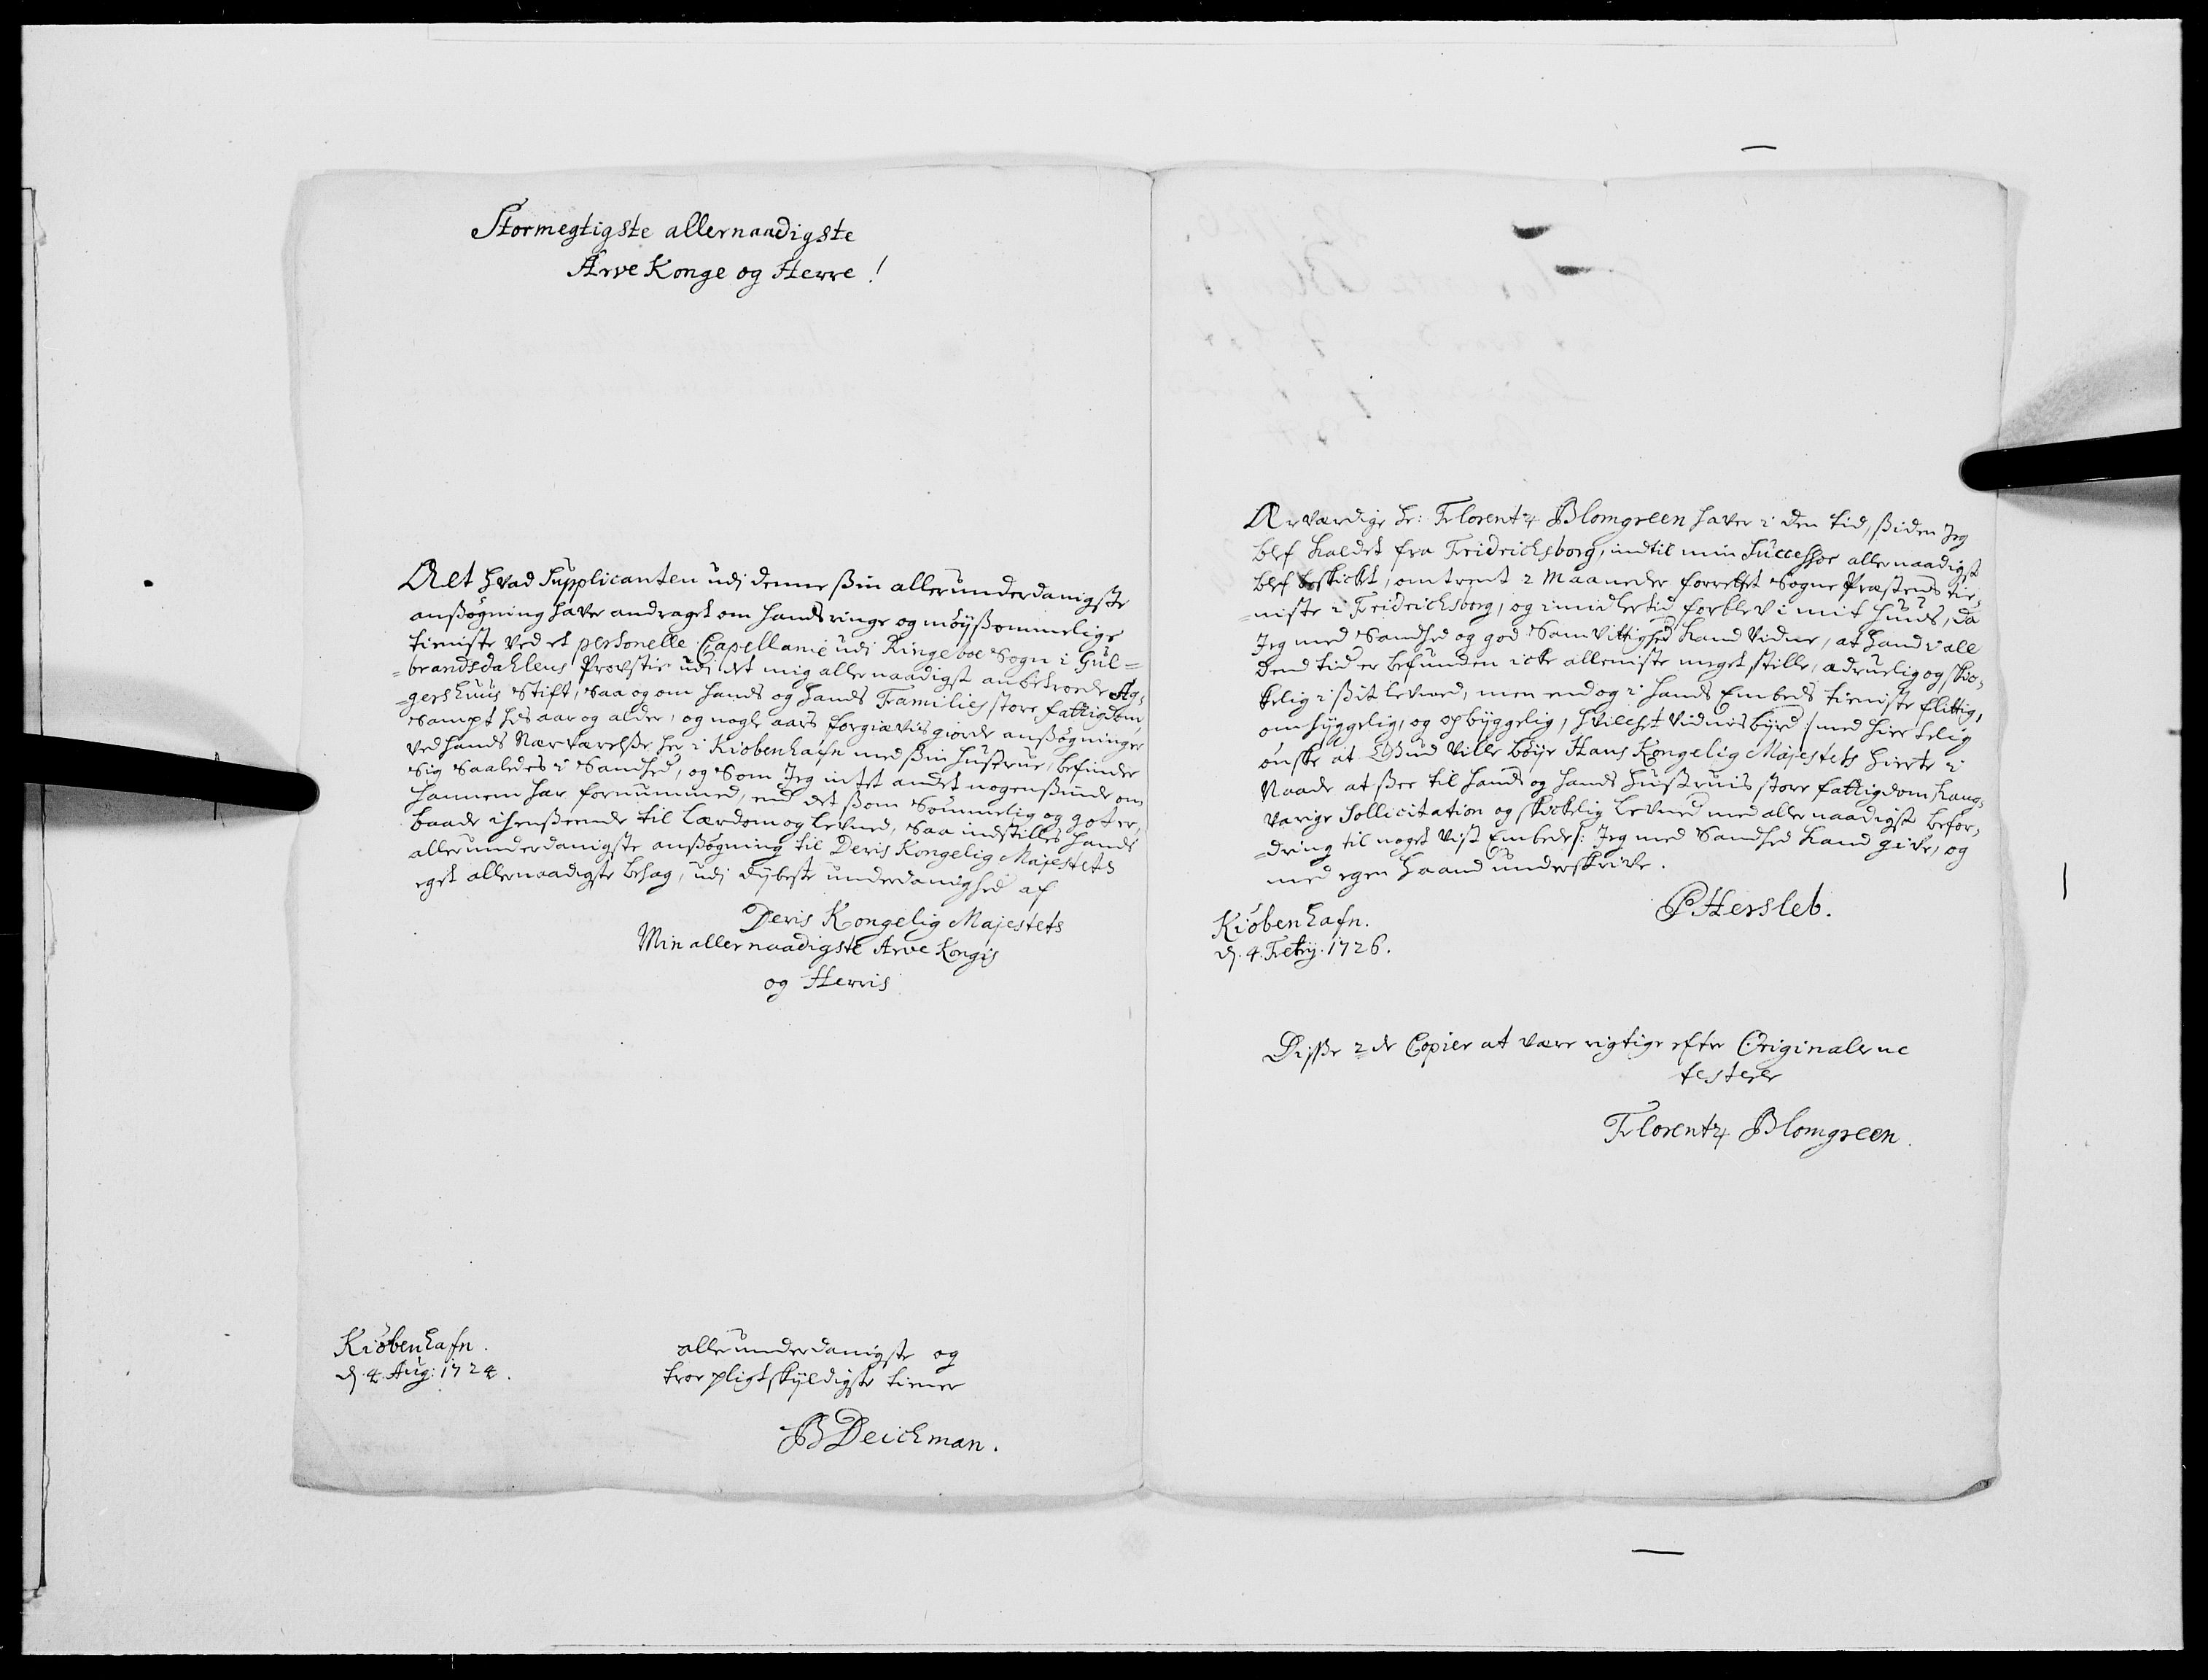 Stormegtigste allernaadigste
Arve Konge og Herre!
Alt hvad Supplicanten udj denne ßin allerunderdanigste
anßøgning haver andraget om hands ringe og møyßommelige
tieniste ved et personelle Capellanie udj Ringeboe Sogn i Gul=
=brandsdahlens Provstie udi det mig allernaadigst anbetroede Ag=
=gershuus Stift, Saa og om hands og hands Families store fattigdom,
Sampt hds aar og alder, og nogle aars forgiævis giorde anßøgninger
ved hands Nærværelße her i Kiøbenhafn med ßin hustrue, befinder
sig Saaledes i Sandhed, og Som Jeg intet andet nogenßinde om
hannem har fornummed, end det ßom Sømmelig og got er,
baade i henßeende til Lærdom og levned, Saa indstilles hands
allerunderdanigste anßøgning til Deris Kongelig Majestets
eget allernaadigste behag, udj dybeste underdanighed af
Deris Kongelig Majestets
Min allernaadigste Arve Kongis
og Herris
Kiøbenhafn.
d. 4. Aug: 1724.
allerunderdanigste og
troe pligtskyldigste tiener
B Deichman.
Ærværdige Hr: Florentz Blomgreen haver i den tid, ßiden Jeg
blef kaldet fra Fridrichsborg, indtil min Successor allernaadigst
blef beskicket, omtrent 2 Maaneder forrettet Sogne Præstens tie=
=niste i Fridrichsborg, og imidlertid forblev i mit huus, da
Jeg med Sandhed og god Samvittighed kand vidne, at hand i all
dend tid er befunden icke alleniste meget stille, ædruelig og skic=
kelig i ßit levned, men endog i hands Embeds tieniste flittig,
omhyggelig, og opbyggelig, hvilchet vidnisbyrd /: med hiertelig
ønske at Gud ville bøye Hans Kongelig Majestets hierte i
Naade at ßee til hands og hands hustruis store fattigdom lang=
varige Sollicitation og skickelig levned med allernaadigst befor=
=dring til noget vist Embede :/ Jeg med Sandhed kand give, og
med egen haand underskrive.
Kiøbenhafn.
d. 4. Febry. 1726.
P Hersleb.
Disße 2de Copier at være rigtige efter Originalerne
testerer
Florentz Blomgreen.